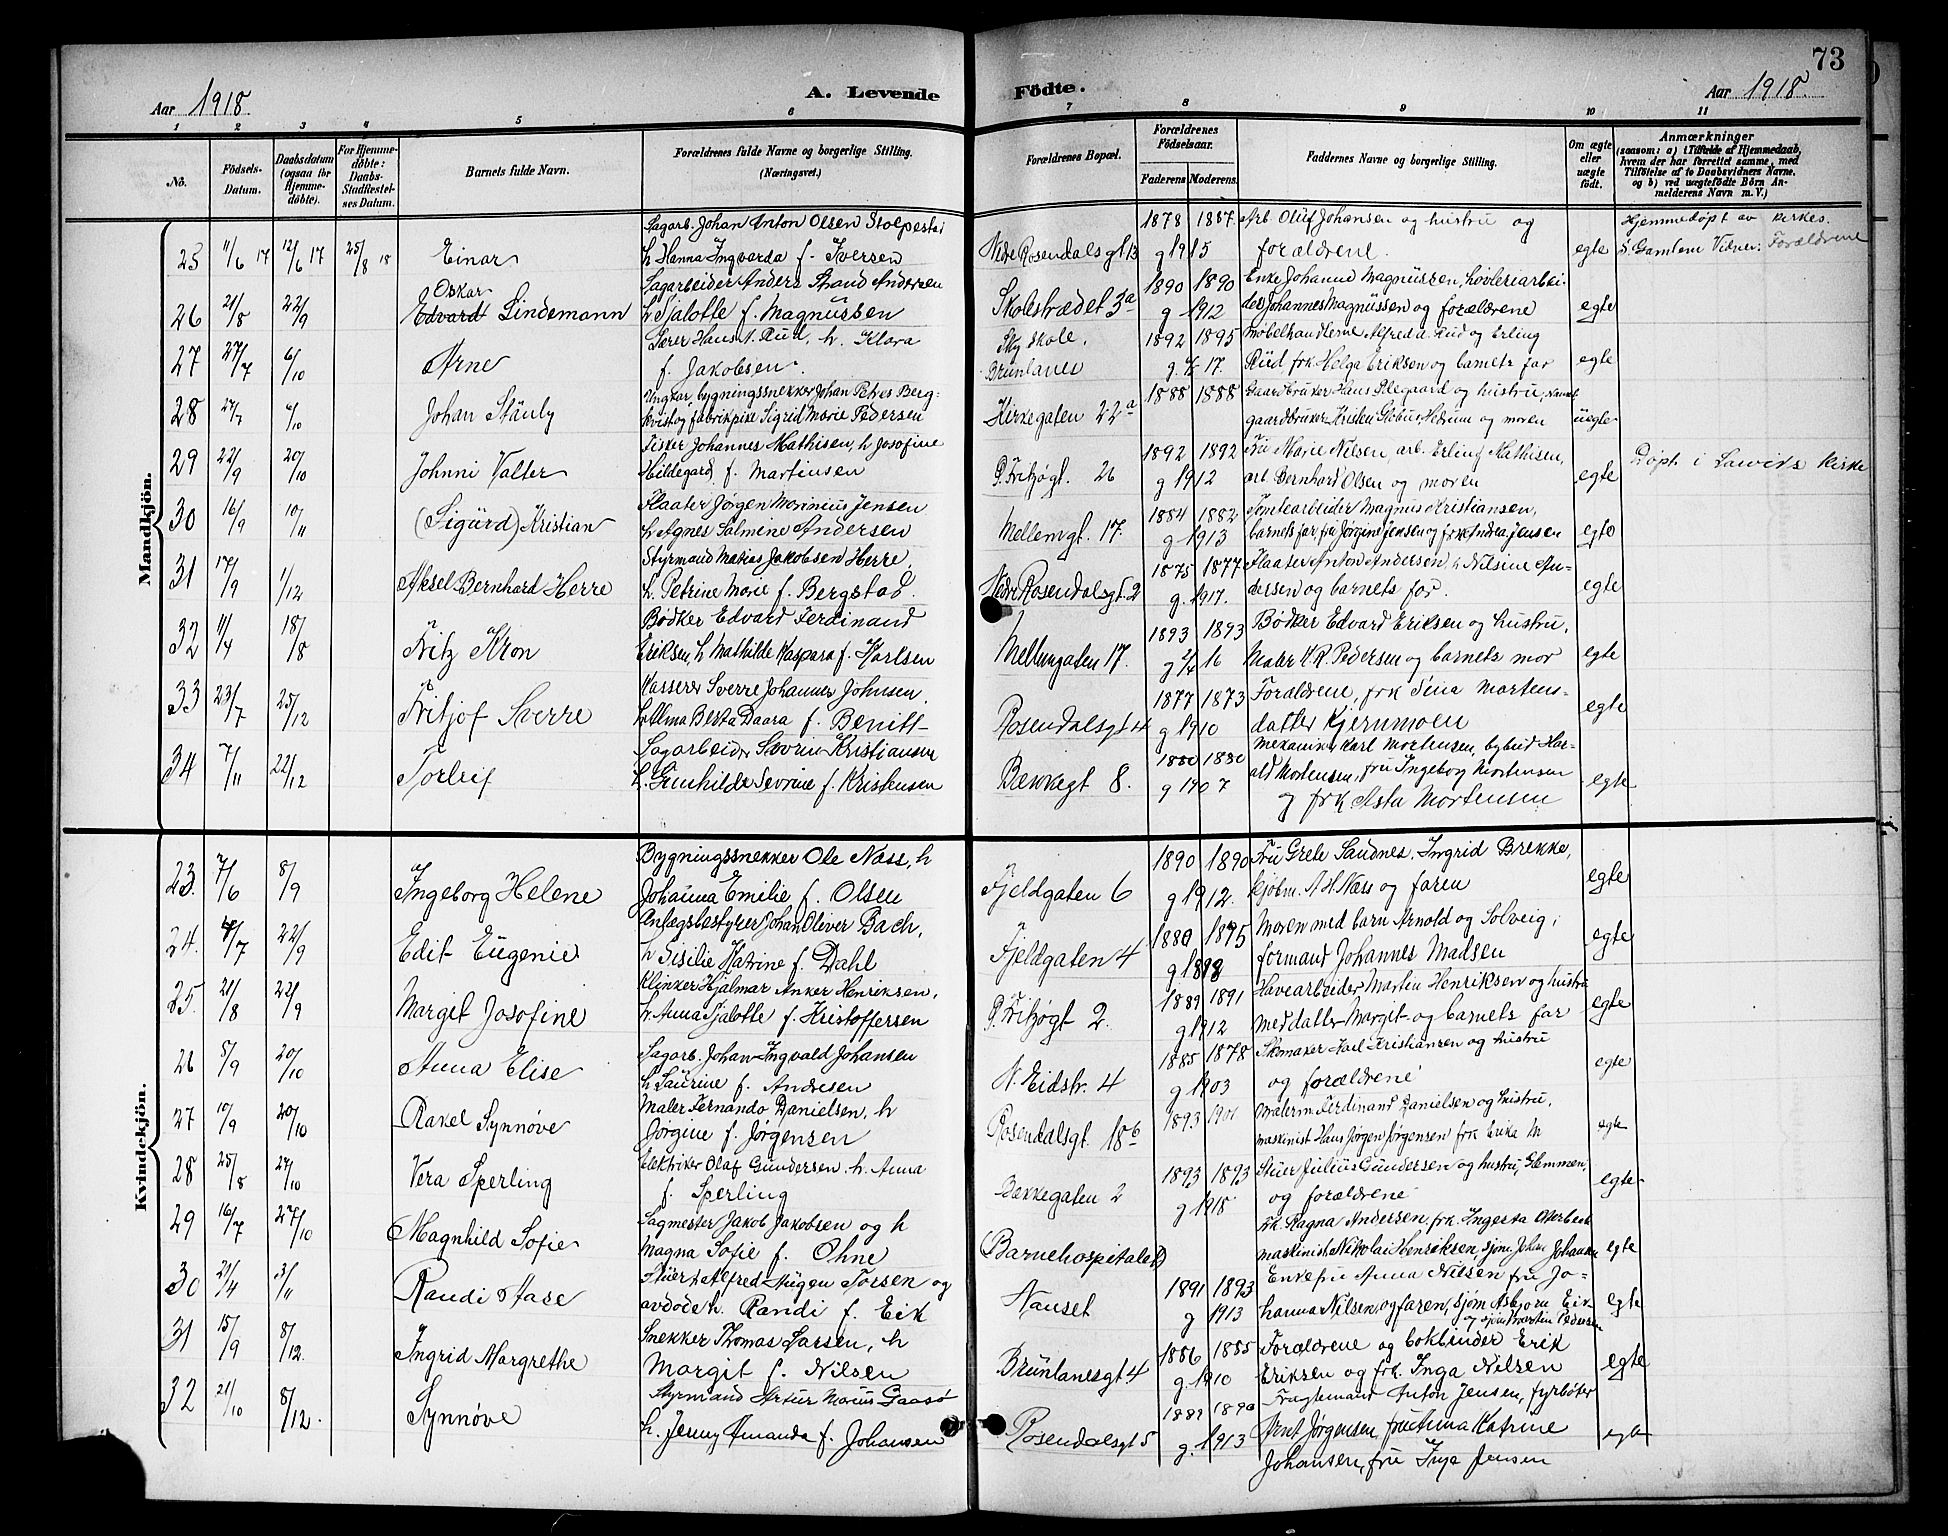 73
Aar 1918
A. Levende
Födte.
Aar 1918.
1 2 3 4 5 6 7 8 9 10 11
No.
Födsels-Datum.
Daabsdatum (ogsaa for Hjemme-döbte).
For Hjemme-döbte: Daabs-Stadfæstel-ses Datum.
Barnets fulde Navn.
Forældrenes fulde Navne og borgerlige Stilling.
(Næringsvei.)
Forældrenes Bopæl.
Forældrenes Födselsaar.
Faderens. Moderens.
Faddernes Navne og borgerlige Stilling.
Om ægte eller uægte födt.
Anmærkninger
(saasom: a) i Tilfælde af Hjemmedaab,
hvem der har forrettet samme, med
Tilföielse af to Daabsvidners Navne,
og b) ved uægtefödte Börn An-
melderens Navn m. V.)
Mandkjön.
Sagarb. Johan Anton Olsen Stolpestad 1878 1887. Arb. Oluf Johansen og hustru og Hjemmedøpt av kirkes.
25 11/6 17 12/6 17 25/8 18 Einar h Hanna Ingvarda f. Iversen Nedre Rosendalsgt 13 g 1915 forældrene. egte S. Gamlem Vidner: Forældrene
Oskar Sagarbeider Anders Strand Andersen 1890 1890 Enke Johanne Magnussen, høvleriarbei-
26 21/8 22/9 Edvard Lindemann h Sjalotte f. Magnussen Skolestrædet 3a g 1912 der Johannes Magnussen og forældrene egte
Lærer Hans A. Rud, h. Klara Sky skole. 1892 1895 Møbelhandlerne Alfred A. Rud og Erling
27 27/7 6/10 Arne f. Jakobsen. Brunlanes g. 17. Rud frk Helga Eriksen og barnets far egte
Ungkar, bygningssnekker Johan Petrus Berg- 1888 1888 Gaardbruker Hans og hustru,
28 27/7 6/10 Johan Stänly kvist og fabrikpike Sigrid Marie Pedersen Kirkegaten 22a gaardbruker Kristen Hedrum og moren uegte
Fisker Johannes Mathisen, h Josofine 1892 1892 Fru Marie Nilsen arb. Erling Mathisen,
29 22/9 20/10 Johnni Valter Hildegard f. Martinsen P. Fritzøgt. 26 g 1912 arb. Bernhard Olsen og moren egte Døpt i Larviks kirke
Flaater Jørgen Marinius Jensen 1884 1882 Tomtearbeider Magnus Kristiansen,
30 16/9 10/11 (Sigurd) Kristian h Agnes Salmine Andersen Mellemgt. 17. g 1913 barnets far, fru Jørgine Jensen og frk Andrea Jensen egte
Styrmand Matias Jakobsen Herre, 1875 1877 Flaater Anton Andersen, h Nilsine An-
31 17/9 1/12 Aksel Bernhard Herre h. Petrine Marie f. Bergstad. Nedre Rosendalsgt. 2 g. 1917. dersen og barnets far. egte
Bødker Edvard Ferdinand 1893 1893 Bødker Edvard Eriksen og hustru,
32 11/4 18/8 Fritz Kron Eriksen, h Mathilde Kaspara f. Karlsen Mellemgaten 17. g 16 Maler K. R. Pedersen og barnets mor egte
Kasserer Sverre Johannes Johnsen, 1877 1873 Forældrene, frk Sina Mortens-
33 23/7 25/12 Fritjof Sverre h Alma Berta Daara f. Benitt Rosendalsgt 4 g 1910 datter Kjernmoen egte
Sagarbeider Søvrin Kristiansen 1880 1880 Mekaniker Karl Mortensen, bybud Har-
34 7/11 22/12 Torleif h. Gunhilde Sevrine f. Kristensen Bækkegt 8. g 1907 ald Mortensen, fru Ingeborg Mortensen egte
og frk Asta Mortensen
Kvindekjön.
Bygningssnekker Ole Næss, h 1890 1890 Fru Grete Sandnes, Ingrid Brekke,
23. 7/6 8/9 Ingeborg Helene Johanna Emilie f. Olsen Fjeldgaten 6 g 1912. kjøbm. A H. Næss og faren egte
Anlægsbestyrer Johan Oliver Bach, 1880 1875 Moren med barn Arnold og Solveig,
24. 7 22/9 Edit Eugenie h Sisilie Katrine f. Dahl Fjeldgaten 4 g 1898 formand Johannes Madsen egte
Klinker Hjalmar Anker Henriksen, 1889 1891 Havearbeider Martin Henriksen og hustru
25. 21/8 22/9 Margit Josofine h. Anna Sjalotte f. Kristoffersen P. Fritzøgt 2. g 1912 med datter Margit og barnets far egte
Sagarb. Johan Ingvald Johansen 1885 1878 Skomaker Karl Kristiansen og hustru
26 5/9 20/10 Anna Elise h Laurine f. Andresen N. Eidstr. 4 g 1903 og forældrene egte
Maler Fernando Danielsen, h 1893 Malerm. Ferdinand Danielsen og hustru,
27 10/9 20/10 Rakel Synnøve Jørgine f. Jørgensen Rosendalsgt. 18b maskinist Hans Jørgen Jørgensen frk Erika M egte
Elektriker Olaf Gundersen, h. Anna 1893 1893 Stuer Julius Gundersen og hustru, Glemmen,
28 25/8 27/10 Vera Sperling f. Sperling Bækkegaten 2 g 1918 og forældrene egte
Sagmester Jakob Jakobsen og h Frk. Ragna Andersen, frk. Ingerta Otterbeck
29 16/7 27/10 Magnhild Sofie Magna Sofie f. Ohne Barnehospitalet maskinist Nikolai Henriksen, sjøm. Johan Johansen egte
Stuert Alfred Augen Torsen og 1891 1893 Enkefru Anna Nilsen fru Jo-
30 4 3/11 Randi Aase avdøde h. Randi f. Eik Nanset g 1913 hanna Nilsen, og faren, sjøm Asbjørn Eik egte
og sjøm Martin Pedersen
Snekker Thomas Larsen, h 1886 1885 Forældrene og bokbinder Erik
31 15/9 8/12. Ingrid Margrethe Margit f. Nilsen Brunlanesgt 4 g 1910 Eriksen og frk. Inga Nilsen egte
Styrmand Artur Marius Gaasø 1889 1890 Fragtemand Anton Jensen, fyrbøter
32 21/10 8/12. Synnøve h. Jenny Amanda f. Johansen Rosendalsgt 5 g. 1913 Arnt Jørgensen, fru Anna Katrine egte
Johansen, fru Inga Jensen